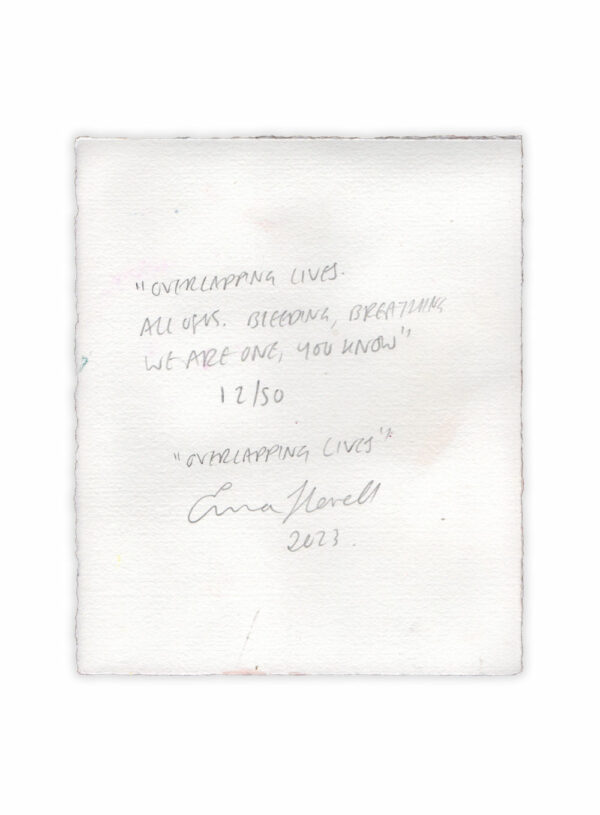 "OVERLAPPING LIVES.
ALL OF US. BLEEDING, BREATHING
WE ARE ONE, YOU KNOW"
12/50
"OVERLAPPING LIVES".
Emma Howell
2023.